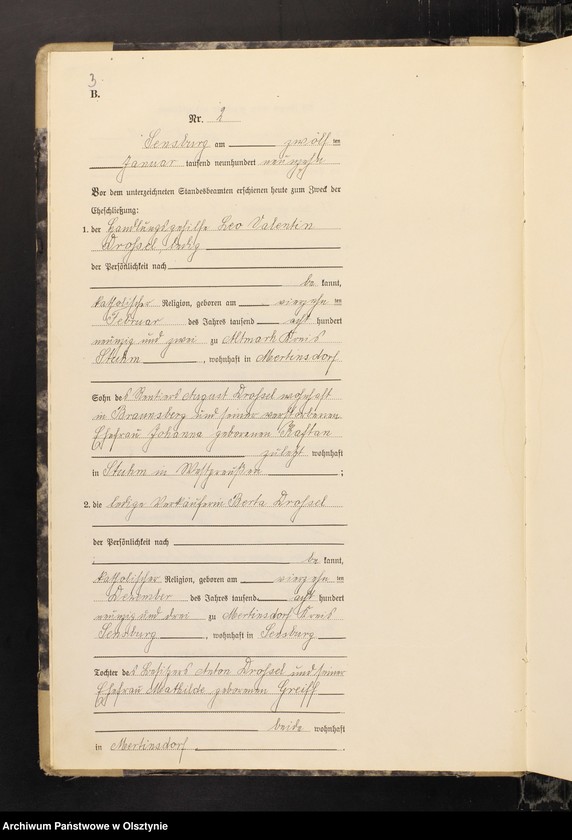 3.
B.
Nr. 2
Sensburg am zwölf ten
Januar tausend neunhundert neunzehn
Vor dem unterzeichneten Standesbeamten erschienen heute zum Zweck der
Eheschließung:
1. der Handlungsgehilfe Leo Valentin
Drossel, ledig
der Persönlichkeit nach
be kannt,
katholischer Religion, geboren am vierzehn ten
Februar des Jahres tausend acht hundert
neunzig und zwei zu Altmark Kreis
Stuhm, wohnhaft in Mertinsdorf
Sohn des Rentiers August Drossel wohnhaft
in Braunsberg und seiner verstorbenen
Ehefrau Johanna geborenen Kastan
zuletzt wohnhaft
in Stuhm in Westpreußen ;
2. die ledige Verkäuferin Berta Drossel
der Persönlichkeit nach
be kannt,
katholischer Religion, geboren am vierzehn ten
Dezember des Jahres tausend acht hundert
neunzig und drei zu Mertinsdorf Kreis
Sensburg, wohnhaft in Sensburg
Tochter des Besitzers Anton Drossel und seiner
Ehefrau Mathilde geborenen Greiff
beide wohnhaft
in Mertinsdorf.
Archiwum Państwowe w Olsztynie